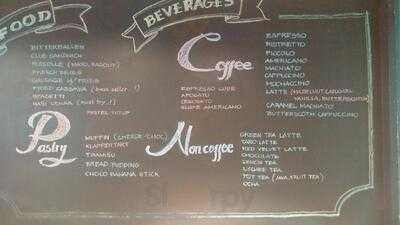 FOOD
BITTERBALLEN
CLUB SANDWICH
RISSOLE (MAYO, RAGOUT)
FRENCH FRIES
SAUSAGE W/ FRIES
FRIED CASSAVA (best seller..!)
SPAGETTI
NASI (must try..!)
PASTEL TUTUP
Pastry
MUFFIN (CHEESE-CHOC)
KLAPPERTART
TIRAMISU
BREAD PUDDING
CHOCO BANANA STICK
BEVERAGES
Coffee
ESPRESSO CUBE
AFOGATO
SUPER AMERICANO
ESPRESSO
RISTRETTO
PICCOLO
AMERICANO
MACHIATO
CAPPUCINO
MOCHACCINO
LATTE (HAZELNUT, CARAMEL,
VANILLA, BUTTERSCOTCH)
CARAMEL MACHIATO
BUTTERSCOTH CAPPUCINO
Non coffee
GREEN TEA LATTE
TARO LATTE
RED VELVET LATTE
CHOCOLATE
LEMON TEA
LYCHEE TEA
HOT TEA (JAVA, FRUIT TEA)
OCHA